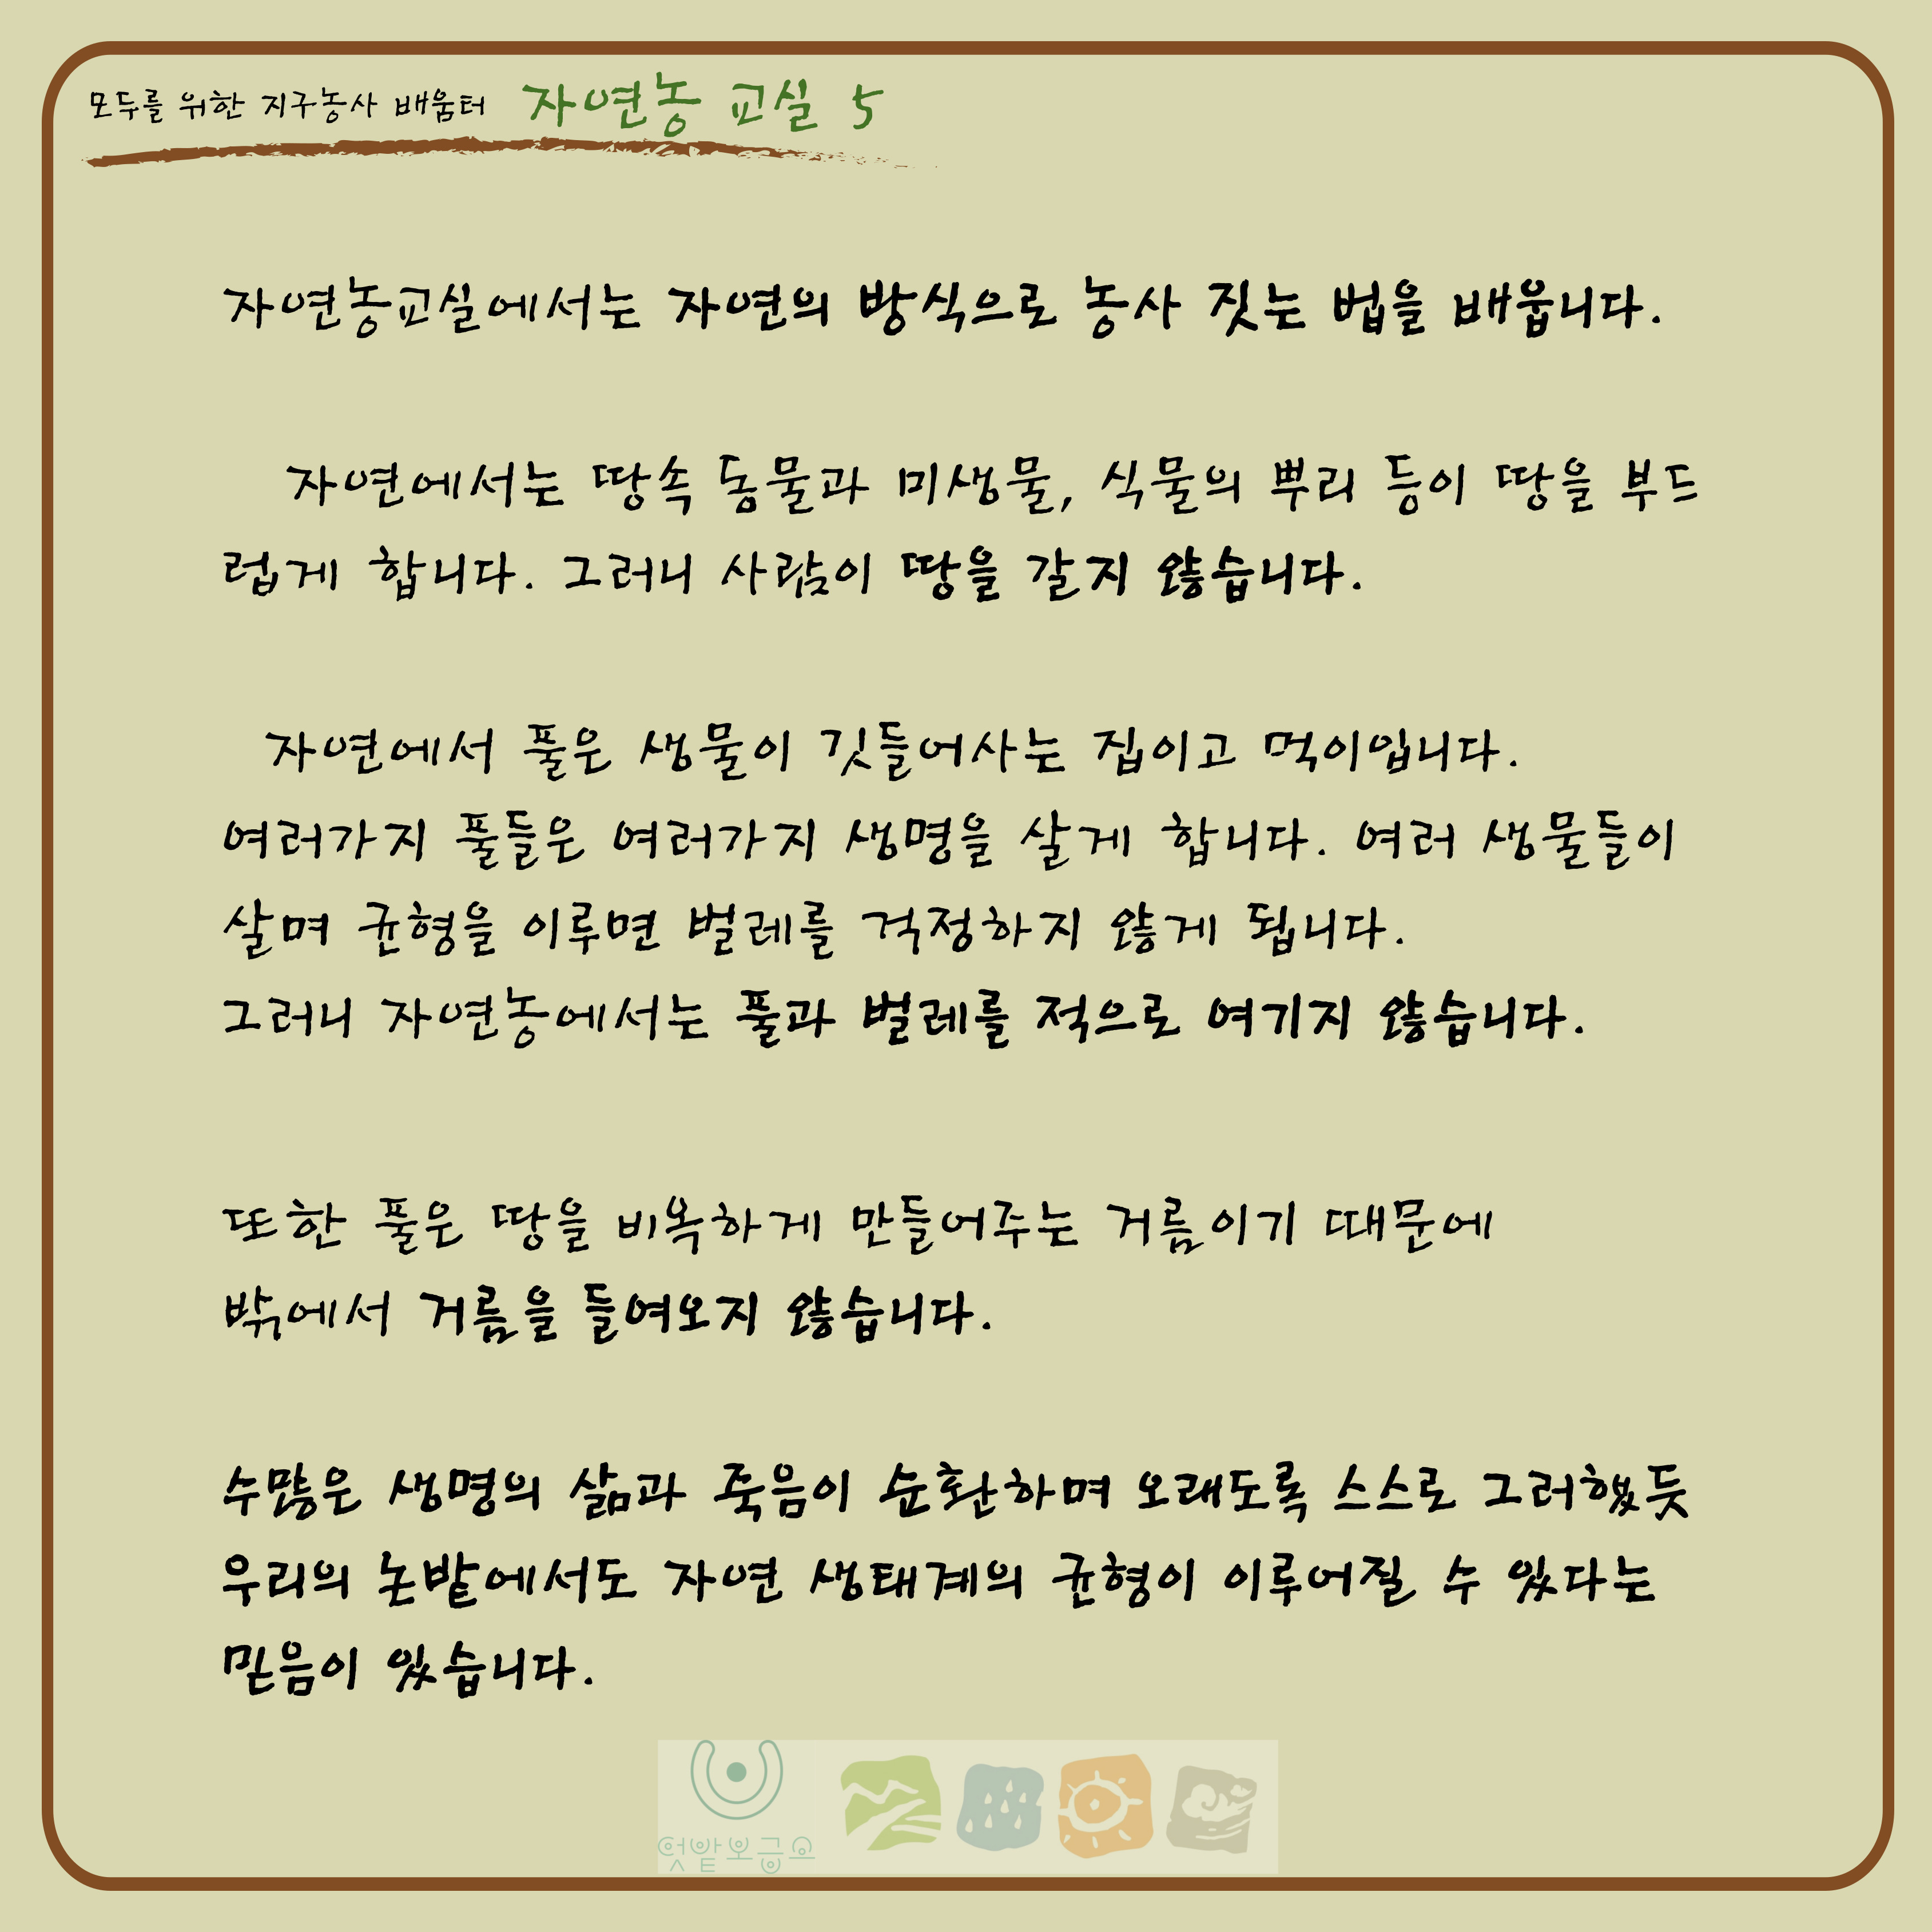 모두를 위한 지구농사 배움터 자연농 교실 5
자연농교실에서는 자연의 방식으로 농사 짓는 법을 배웁니다.
자연에서는 땅속 동물과 미생물, 식물의 뿌리 등이 땅을 부드
럽게 합니다. 그러니 사람이 땅을 갈지 않습니다.
자연에서 풀은 생물이 깃들어사는 집이고 먹이입니다.
여러가지 풀들은 여러가지 생명을 살게 합니다. 여러 생물들이
살며 균형을 이루면 벌레를 걱정하지 않게 됩니다.
그러니 자연농에서는 풀과 벌레를 적으로 여기지 않습니다.
또한 풀은 땅을 비옥하게 만들어주는 거름이기 때문에
밖에서 거름을 들여오지 않습니다.
수많은 생명의 삶과 죽음이 순환하며 오래도록 스스로 그러했듯
우리의 논밭에서도 자연 생태계의 균형이 이루어질 수 있다는
믿음이 있습니다.
텃밭보급소